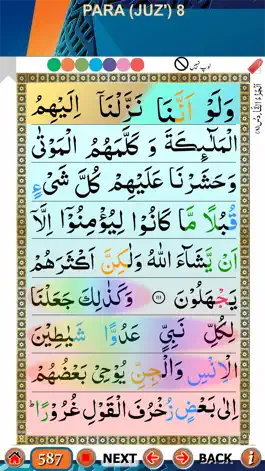 PARA (JUZ') 8
لوپ نہیں
وَلَوْ اَنَّنَا نَزَّلْنَاۤ اِلَیْهِمُ
الْمَلٰٓىِٕكَةَ وَ كَلَّمَهُمُ الْمَوْتٰى
وَحَشَرْنَا عَلَیْهِمْ كُلَّ شَیْءٍ
قُبُلًا مَّا كَانُوْا لِیُؤْمِنُوْۤا اِلَّاۤ
اَنْ یَّشَآءَ اللّٰهُ وَلٰكِنَّ اَكْثَرَهُمْ
یَجْهَلُوْنَ ۝۱۱۱ وَكَذٰلِكَ جَعَلْنَا
لِكُلِّ نَبِیٍّ عَدُوًّا شَیٰطِیْنَ
الْاِنْسِ وَالْجِنِّ یُوْحِیْ بَعْضُهُمْ
اِلٰى بَعْضٍ زُخْرُفَ الْقَوْلِ غُرُوْرًا ؕ
587 NEXT BACK i